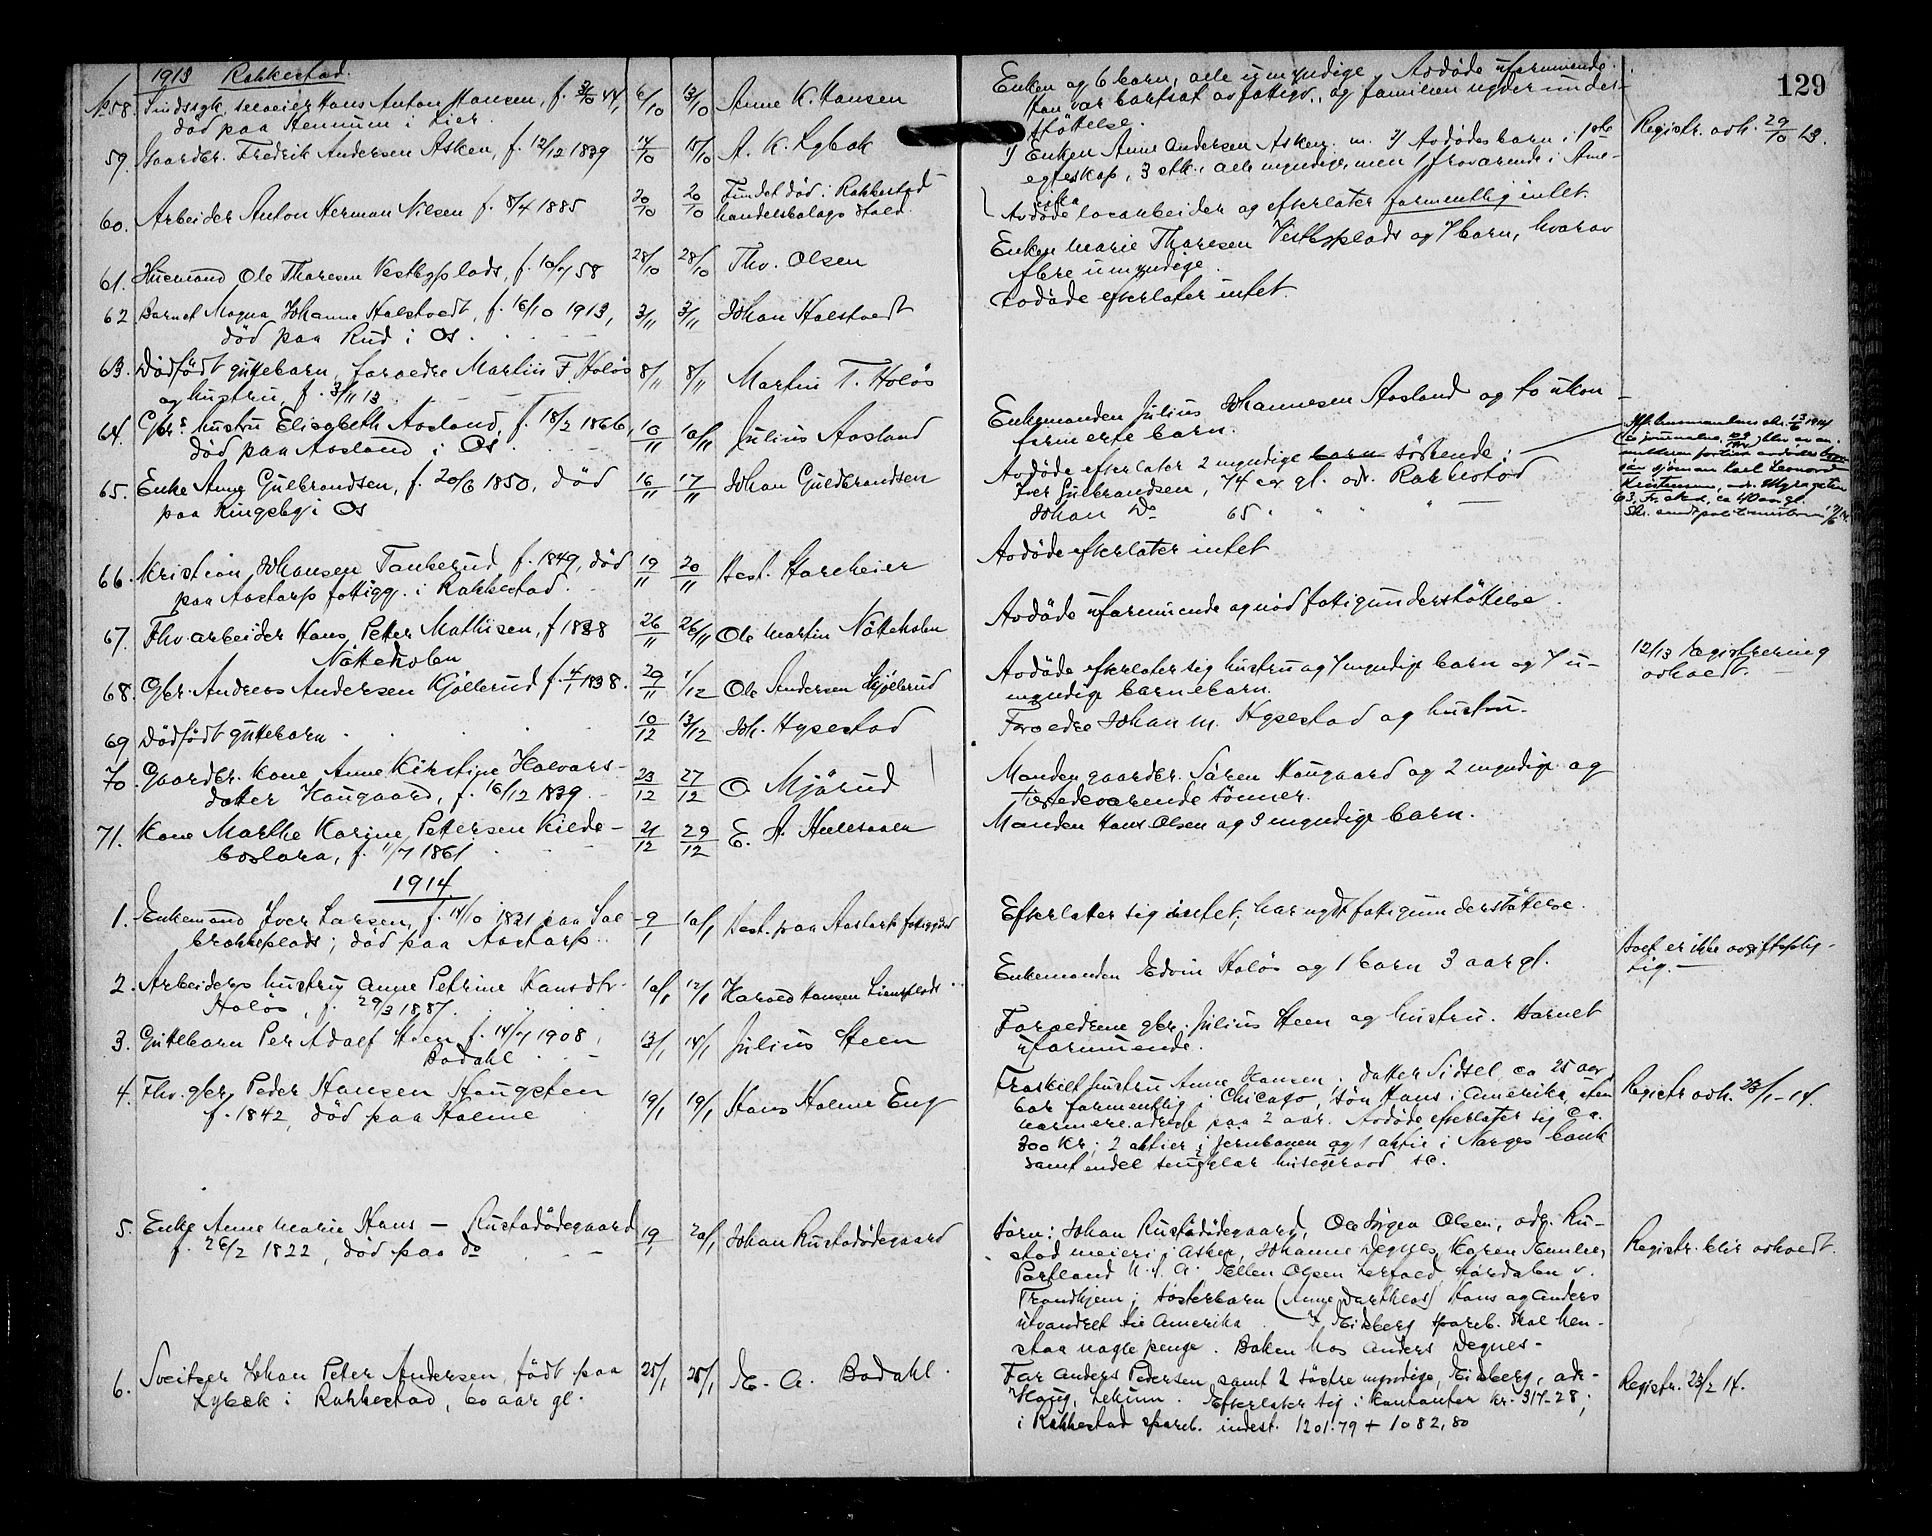 129
1913 Rakkestad.
No 58. Sindssyk, Hans Anton Hansen, f. 44, 6/10 13/10 Anne K. Hansen
død paa Hennum i Lier.
Enken og 6 barn, alle umyndige. Avdøde uformuende.
Han var bortsat av fattigv., og familien nyder under-
støttelse.
59. Gaardbr. Fredrik Andersen Asken, f. 12/12 1839 14/10 15/10 A. K. Lybæk
1) Enken Anne Andersen Asken m. 2) Avdødes barn i 1ste
egteskap, 3 stk., alle myndige, men 1 fraværende i Ame-
rika
Registr. avh. 29/10 13.
60. Arbeider Anton Herman Nilsen f. 8/4 1885 20/10 20/10 Fundet død i Rakkestad
handelslags stald.
Avdøde løsarbeider og efterlater formentlig intet.
61. Husmand Ole Thoresen Vestbyplads, f. 10/7 58 28/10 28/10 Thv. Olsen
Enken Marie Thoresen Vestbyplads og 7 barn, hvorav
flere umyndige.
62. Barnet Magna Johanne Halstvedt, f. 16/10 1913, 3/11 3/11 Johan Halstvedt
død paa Rud i Os.
Avdøde efterlater intet.
63. Dødfødt guttebarn, foreldre Martin T. Holøs 8/11 8/11 Martin T. Holøs
og hustru, f. 3/11 13
64. Gbrs hustru Elisabeth Aasland, f. 18/2 1866, 10/11 10/11 Julius Aasland
død paa Aasland i Os
Enkemanden Julius Johannesen Aasland og to ukon-
firmerte barn.
65. Enke Anne Gulbrandsen, f. 20/6 1850, død 16/11 17/11 Johan Guldbrandsen
paa Kingsby i Os
Avdøde efterlater 2 myndige barn søskende:
Iver Gulbrandsen, 74 aar gl. adr. Rakkestad
Johan Do 65 " " " "
63, Fr.stad, ca 40 aar gl.
66. Kristian Johansen Tankerud, f. 1849, død 19/11 20/11 Best. Harcheier
paa Aastorp fattigg. i Rakkestad.
Avdøde efterlater intet
67. Fhv. arbeider Hans Peter Mathisen, f 1838 26/11 26/11 Ole Martin Nötteholen
Nötteholen
Avdöde uformuende og nød fattigunderstøttelse.
68. Gbr. Anders Andersen Kjøllerud f. 4/1 1838. 29/11 1/12 Ole Andersen Kjøllerud
Avdøde efterlater sig hustru og 7 myndige barn og 7 u-
myndige barnebarn.
12/13 Registrering
avholdt.
69 Dødfødt guttebarn 10/12 13/12 Joh. Hysestad
Foreldre Johan M. Hysestad og hustru.
70. Gaardbr. kone Anne Kirstine Halvors- 23/12 27/12 O Mjørud
datter Haugaard, f. 16/12 1839
Manden gaardbr. Søren Haugaard og 2 myndige og
tilstedeværende sønner.
71. Kone Marthe Karine Petersen Kilde- 21/12 29/12 E. A.
f. 11/7 1861
Manden Hans Olsen og 3 myndige barn.
1914
1. Enkemand Iver Larsen, f. 14/10 1831 paa 9/1 10/1 Best. paa Aastorp fattiggaard
død paa Aastorp.
Efterlater sig intet; har nydt fattigunderstøttelse.
2. Arbeiders hustru Anne Petrine Hansdtr. 10/1 12/1 Harald Hansen
Holøs, f. 29/3 1887.
Enkemanden Edvin Holøs og 1 barn 3 aar gl.
Boet er ikke avgiftspligtig.
3. Guttebarn Per Adolf Steen f. 14/7 1908, 13/1 14/1 Julius Steen
Bodahl
Foreldrene gbr. Julius Steen og hustru. Barnet
uformuende.
4. Fhv. gbr. Peder Hansen Haugsten 19/1 19/1 Hans Holme Eng
f. 1842, død paa Holme
Fraskilt hustru Anne Hansen; datter Sidsel ca 25 aar,
bor formentlig i Chicago, søn Hans i Amerika, uten
nærmere adresse paa 2 aar. Avdøde efterlater sig ca.
300 kr., 2 aktier i jernbanen og 1 aktie i Norges bank
samt endel sengklær husgeraad &c.
Registr avh. 23/1-14.
5. Enke Anne Marie Hans - Rustadødegaard 19/1 20/1 Johan Rustadødegaard
f. 26/2 1822, død paa do
Barn: Johan Rustadødegaard, Ole Olsen, adr. Ru-
stad meieri i Asker, Johanne Degnes, Karen
Portland U.S.A. Ellen Olsen Lerfald, Størdalen v.
Trondhjem; søsterbarn (Anne) Hans og Anders
utvandret til Amerika. I Eidsberg spareb. skal hen-
staa nogle penge. Boken hos Anders Degnes-
Registr. blir avholdt.
6. Sveitser Johan Peter Andersen, født paa 25/1 25/1 E. A. Bodahl.
Lybæk i Rakkestad, 60 aar gl.
Far Anders Pedersen samt 2 søstre myndige, Eidsberg, adr.
Haug, Lekum. Efterlater sig i kontanter kr. 317-28;
i Rakkestad spareb. indest. 1201.79 + 1082,80
Registr. 23/2 14.